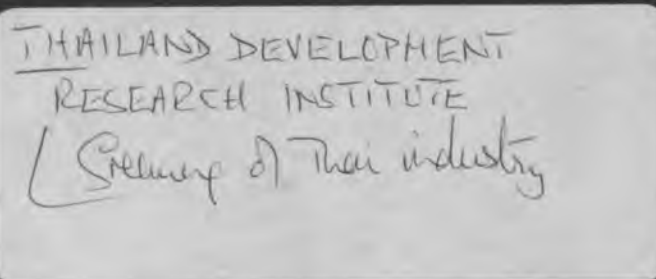 THAILAND DEVELOPMENT
RESEARCH INSTITUTE
Greening of Thai industry